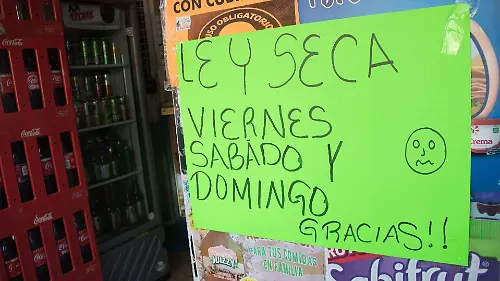 CON CUB
USO OBLIGATORIO
LEY SECA
VIERNES
SABADO Y
DOMINGO
GRACIAS!!
Crema
PARA TUS COMIDAS
EN FAMILIA
Coca-Cola
Coca-Cola
Coca-Cola
Coca-Cola